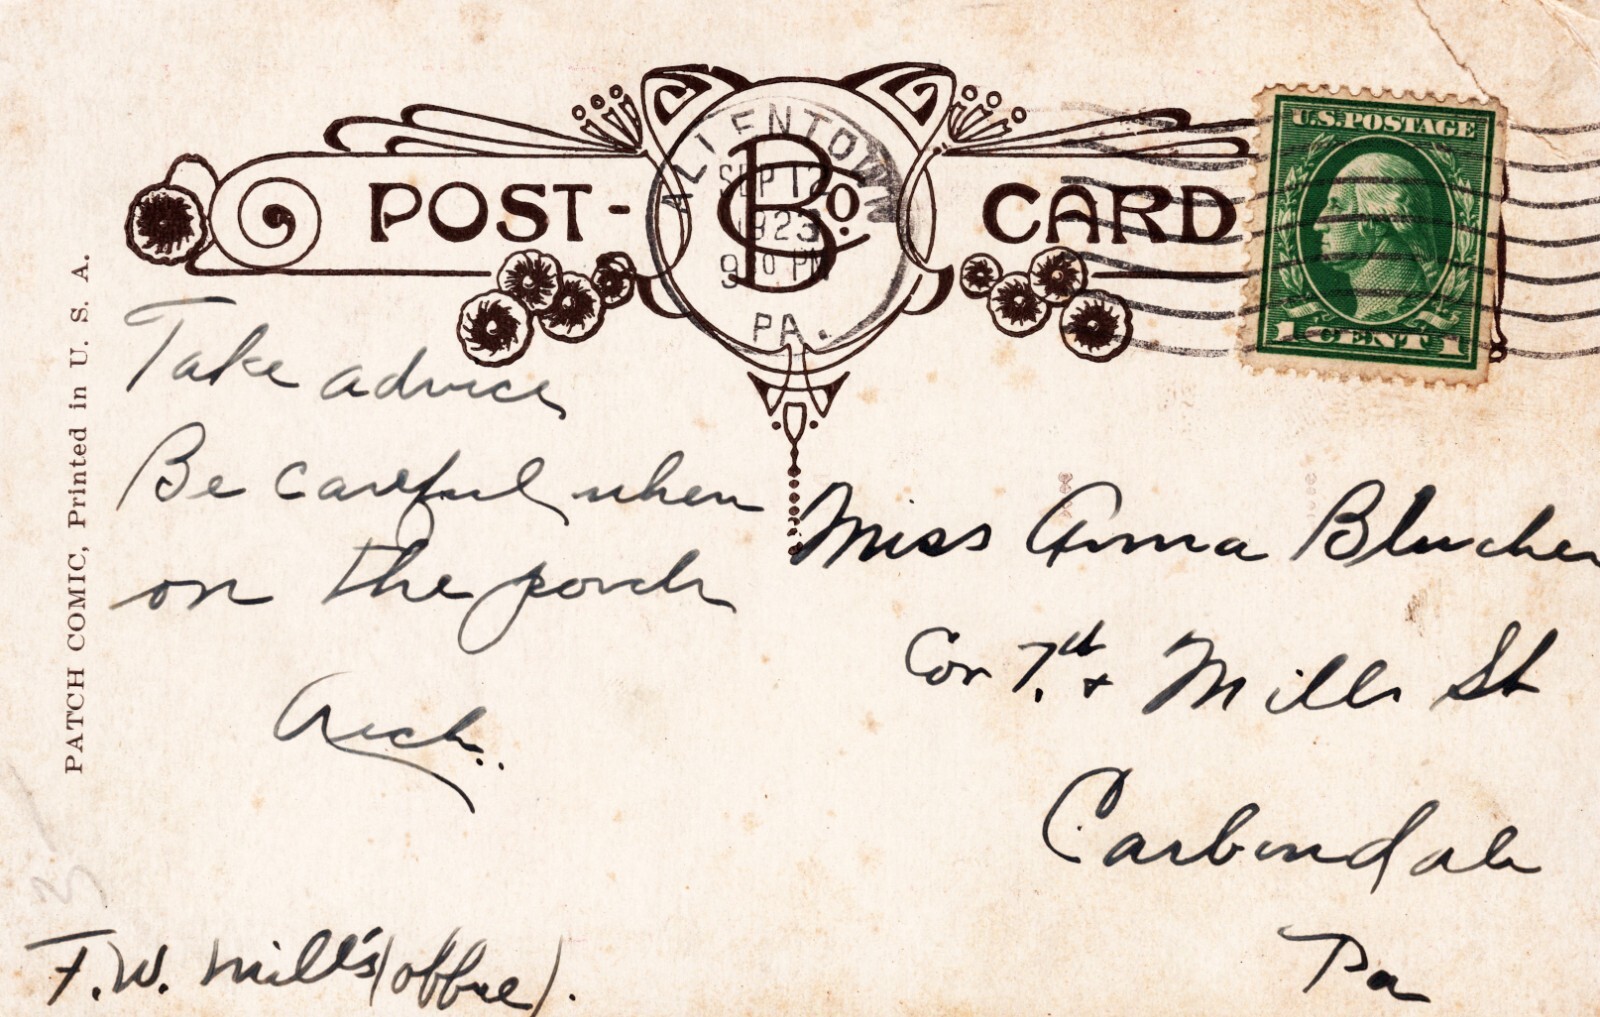 POST-CARD
ALLENTOWN
SEP 12
1923
PM
PA.
BS Co.
U.S.POSTAGE
1 CENT 1
PATCH COMIC, Printed in U. S. A.
Take advice
Be careful when
on the porch
Arch..
Miss Anna Blucher
Cor 7.th + Mills St
Carbondale
Pa
F.W. Mills (office).
3